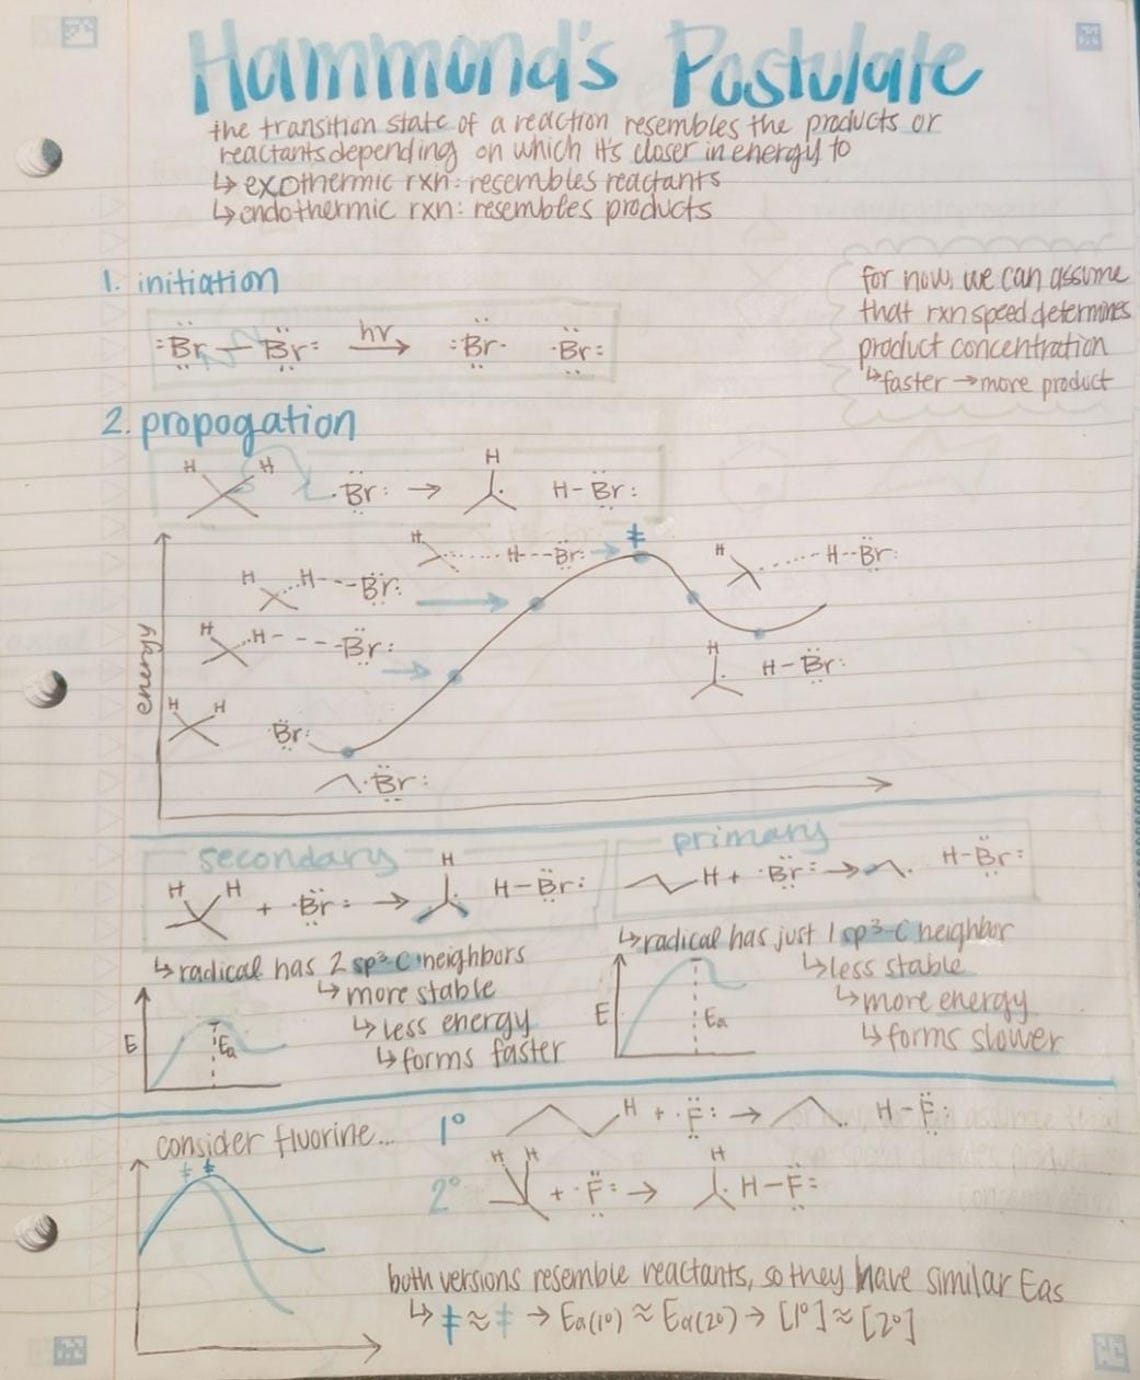 Hammond's Postulate
the transition state of a reaction resembles the products or
reactants depending on which it's closer in energy to
↳ exothermic rxn: resembles reactants
↳ endothermic rxn: resembles products
1. initiation
:Br — Br: hv → :Br· ·Br:
for now, we can assume
that rxn speed determines
product concentration
↳ faster → more product
2. propogation
H H ·Br: → H · H-Br:
‡
H ····· H---Br:
H ····· H--Br:
H H---Br:
H H- - - -Br:
energy
H H-Br:
H H Br:
·Br:
secondary
H H + ·Br: → H H-Br:
↳ radical has 2 sp³-C neighbors
↳ more stable
↳ less energy
↳ forms faster
E Ea
primary
H + ·Br: → · H-Br:
↳ radical has just 1 sp³-C neighbor
↳ less stable
↳ more energy
↳ forms slower
E Ea
consider fluorine...
1° H + ·F: → · H-F:
‡ ‡
2° H H + ·F: → H · H-F:
both versions resemble reactants, so they have similar Eas
↳ ‡ ≈ ‡ → Ea(1°) ≈ Ea(2°) → [1°] ≈ [2°]